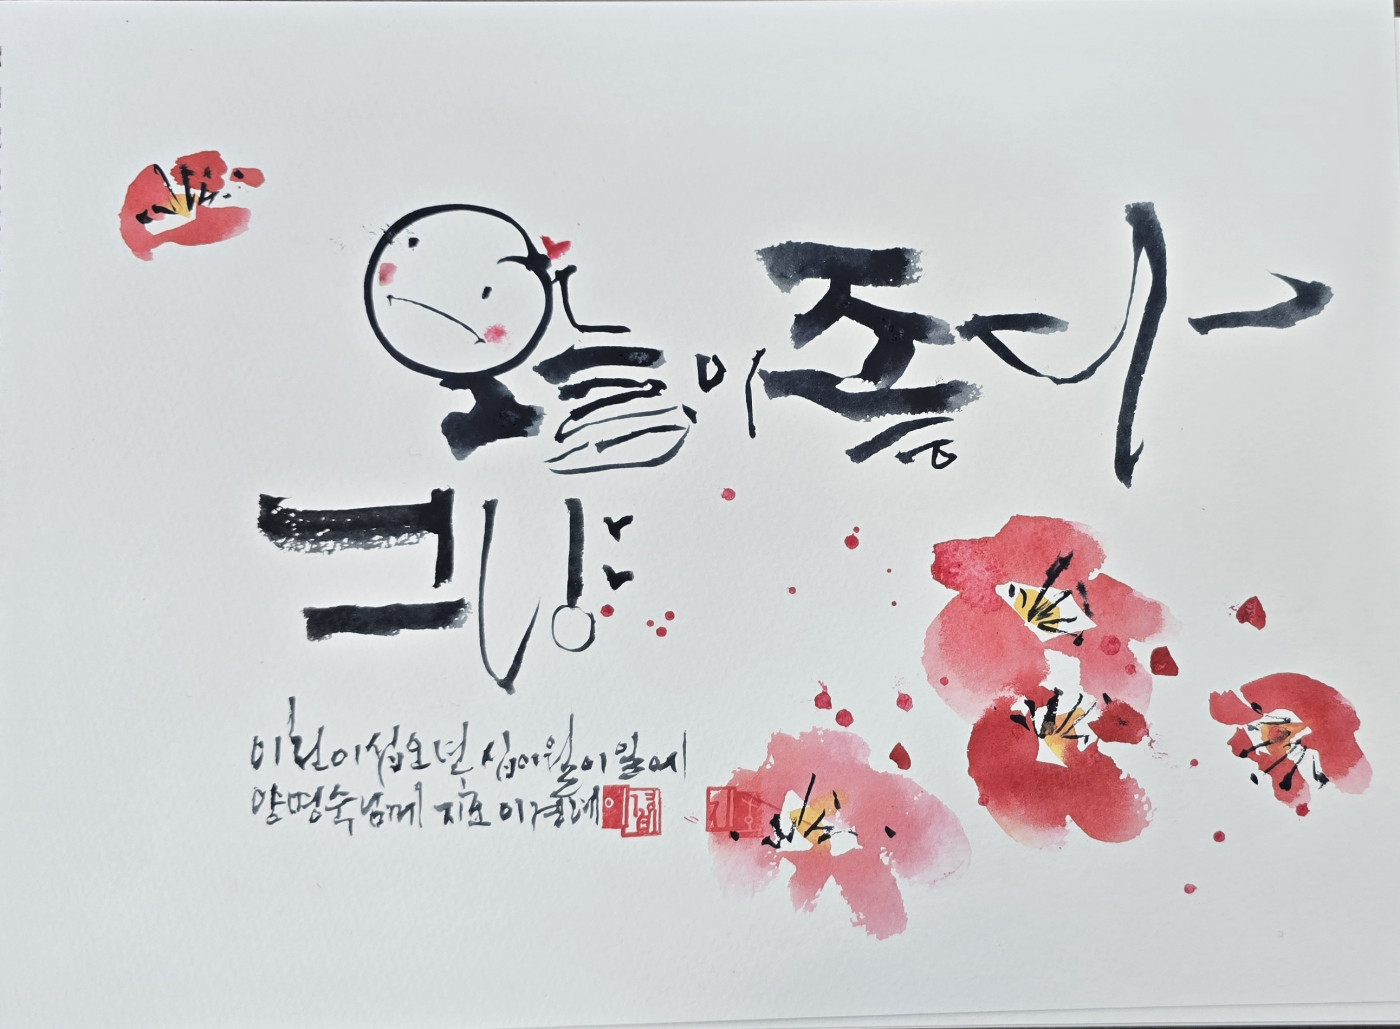 오늘이 좋다
그냥
이천이십오년 십이월 이일에
양명숙님께 지호
지호